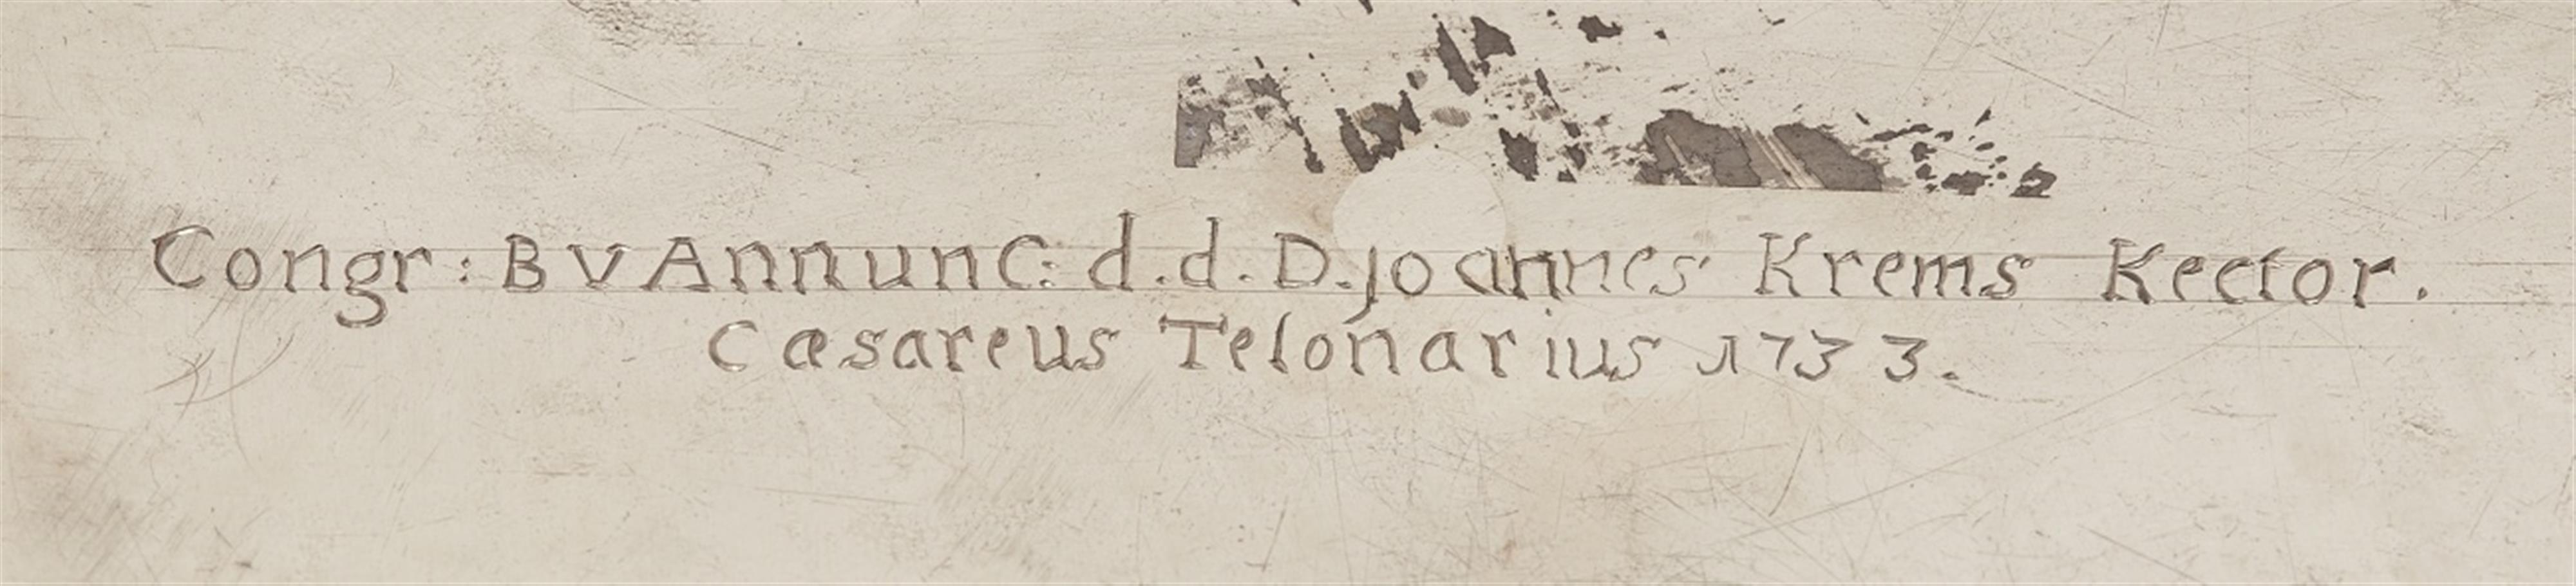 Congr: B V AnnunC: d.d. D. joannes Krems Rector.
Cæsareus Telonarius 1733.